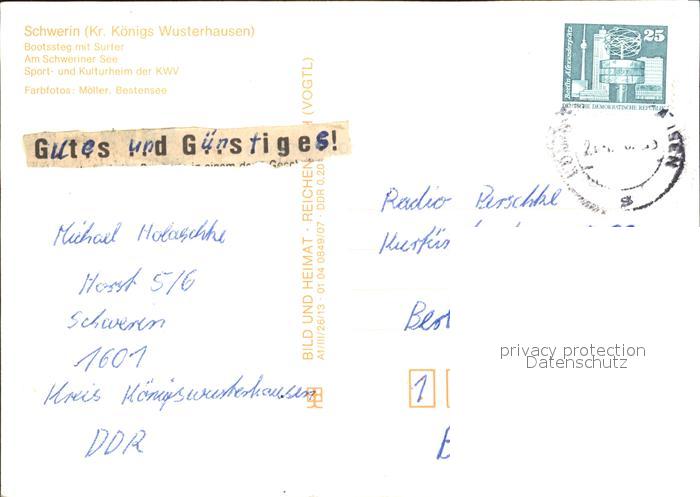 Schwerin (Kr. Königs Wusterhausen)
Bootssteg mit Surfer
Am Schweriner See
Sport- und Kulturheim der KWV
Farbfotos: Möller, Bestensee
Gutes und Günstiges!
Michael
Horst 5/6
Schwerin
1601
Kreis Königswusterhausen
DDR
BILD UND HEIMAT · REICHEN (VOGTL)
A1/III/26/13 · 01 04 0849/07 · DDR 0.20
25
Berlin, Alexanderplatz
DEUTSCHE DEMOKRATISCHE REPUBLIK
s
Radio
Kurfürs
Ber
1
privacy protection
Datenschutz